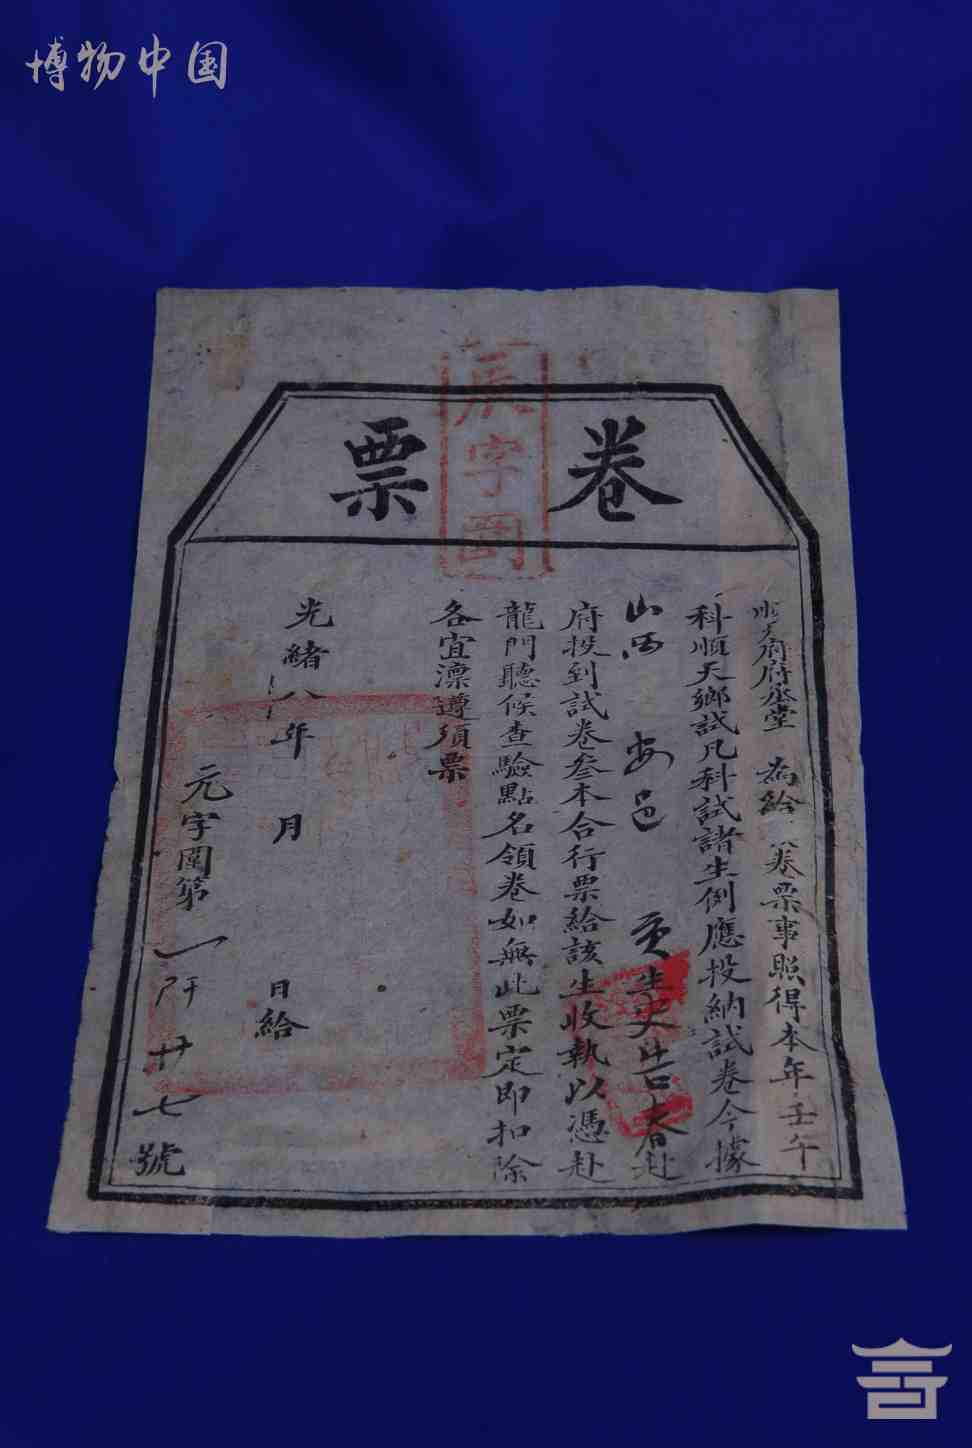 博物中国
卷票
辰字圍
順天府府丞堂 為給 卷票事照得本年壬午
科順天鄉試凡科試諸生例應投納試卷今據
山西 安邑 貢生史 春赴
府投到試卷叁本合行票給該生收執以憑赴
龍門聽候查驗點名領卷如無此票定即扣除
各宜凛遵須票
光緒八年 月 日給
元字圍第一阡廿七號